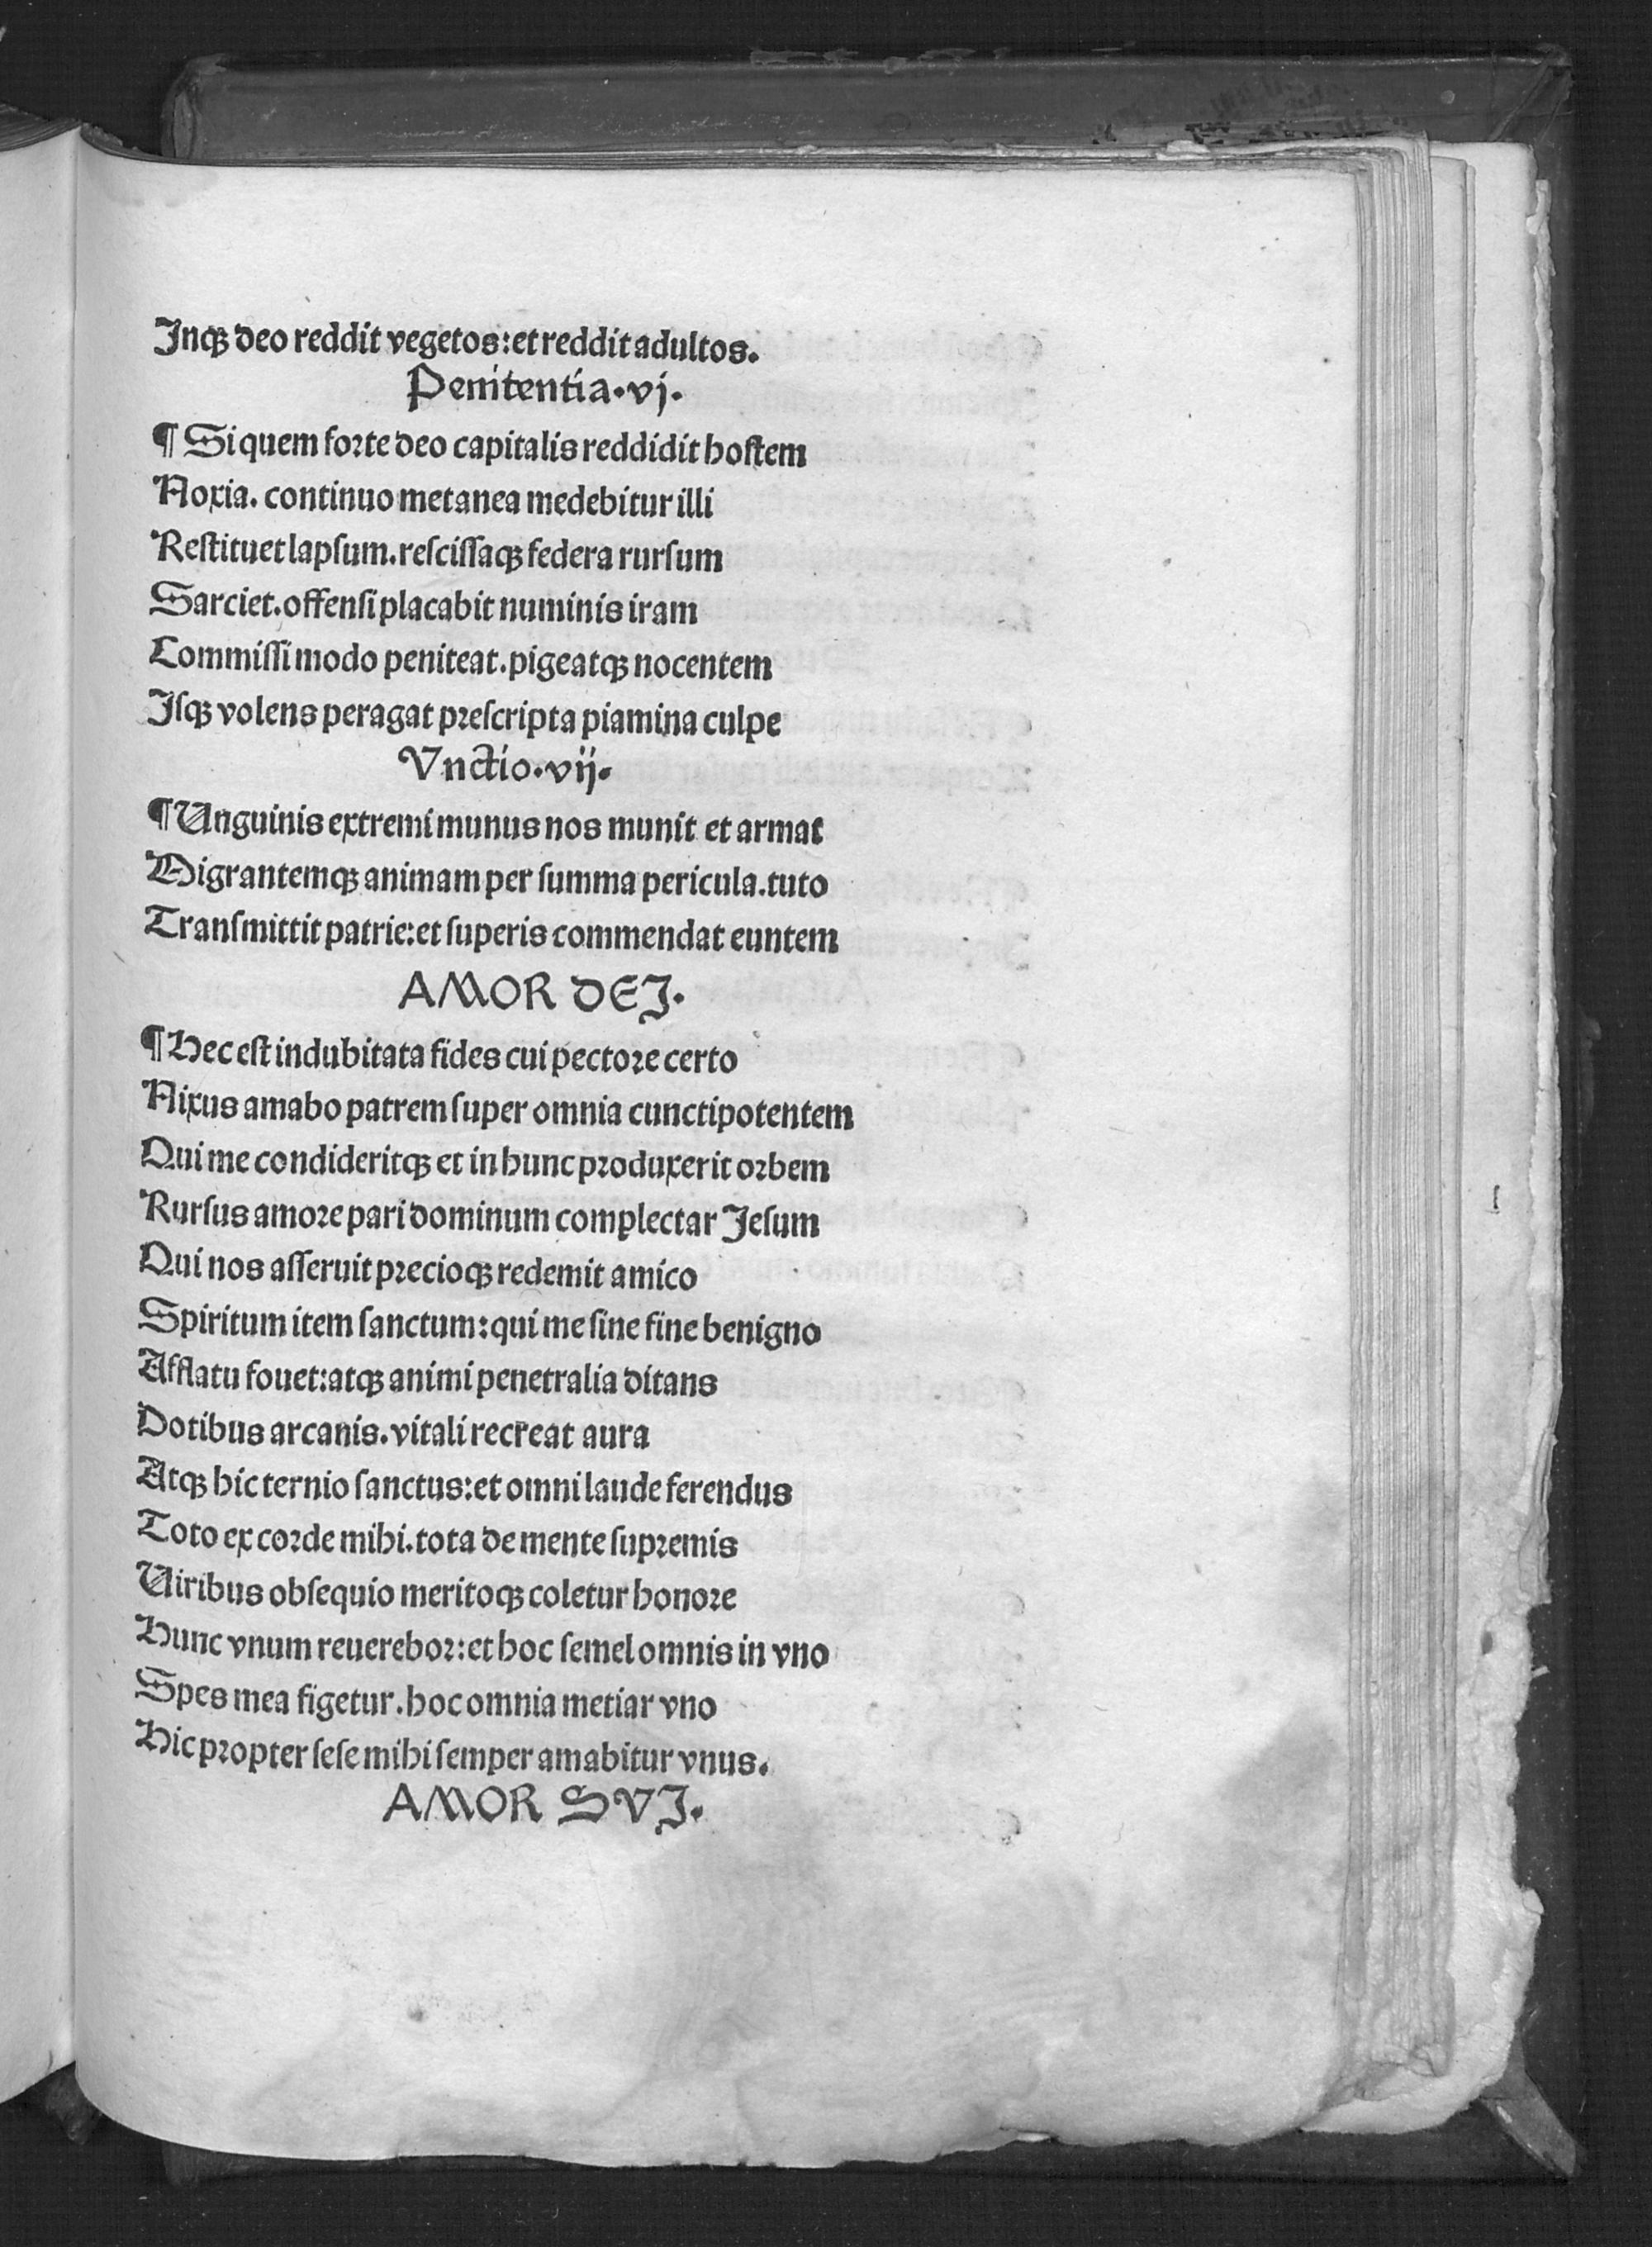 Inqꝫ deo reddit vegetos: et reddit adultos.
Penitentia. vj.
¶ Si quem forte deo capitalis reddidit hostem
Noxia. continuo metanea medebitur illi
Restituet lapsum. rescissaqꝫ federa rursum
Sarciet. offensi placabit numinis iram
Commissi modo peniteat. pigeatqꝫ nocentem
Isqꝫ volens peragat prescripta piamina culpe
Vnctio. vij.
¶ Unguinis extremi munus nos munit et armat
Migrantemqꝫ animam per summa pericula. tuto
Transmittit patrie: et superis commendat euntem
AMOR DEI.
¶ Hec est indubitata fides cui pectore certo
Nixus amabo patrem super omnia cunctipotentem
Qui me condideritqꝫ et in hunc produxerit orbem
Rursus amore pari dominum complectar Jesum
Qui nos asseruit precioqꝫ redemit amico
Spiritum item sanctum: qui me sine fine benigno
Afflatu fouet: atqꝫ animi penetralia ditans
Dotibus arcanis. vitali recreat aura
Atqꝫ hic ternio sanctus: et omni laude ferendus
Toto ex corde mihi. tota de mente supremis
Uiribus obsequio meritoqꝫ coletur honore
Hunc vnum reuerebor: et hoc semel omnis in vno
Spes mea figetur. hoc omnia metiar vno
Hic propter sese mihi semper amabitur vnus.
AMOR SVI.